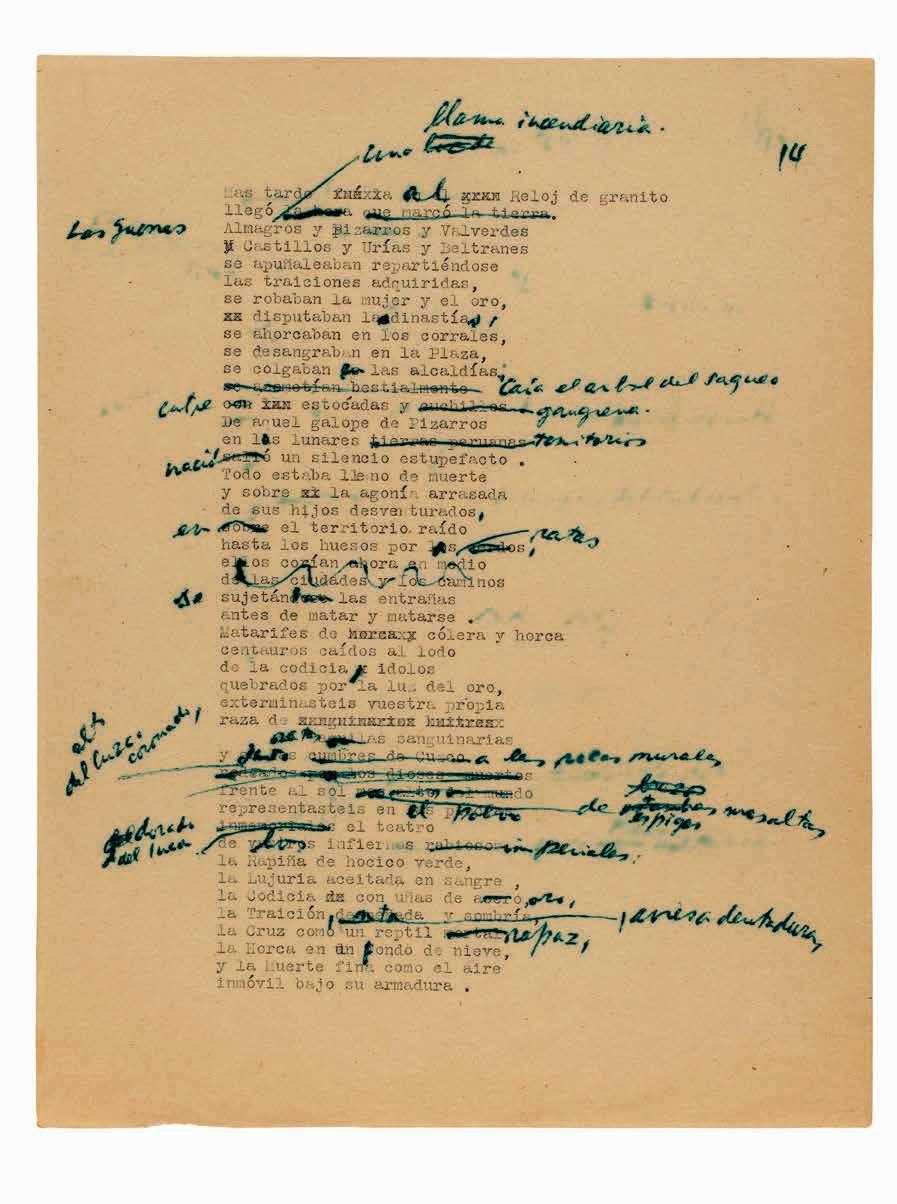 llama incendiaria.
una
14
Mas tarde al Reloj de granito
llegó la hora que marcó la tierra.
Las guerras
Almagros y Pizarros y Valverdes
y Castillos y Urías y Beltranes
se apuñaleaban repartiéndose
las traiciones adquiridas,
se robaban la mujer y el oro,
disputaban la dinastía,
se ahorcaban en los corrales,
se desangraban en la Plaza,
se colgaban en las alcaldías,
se acometían bestialmente Caía el arbol del saqueo
entre con estocadas y cuchillos gangrena.
De aquel galope de Pizarros
en los lunares tierras peruanas territorios
nació salió un silencio estupefacto .
Todo estaba lleno de muerte
y sobre la agonía arrasada
de sus hijos desventurados,
en sobre el territorio raído
hasta los huesos por las ratas,
ellos corían ahora en medio
de las ciudades y los caminos
se sujetán las entrañas
antes de matar y matarse .
Matarifes de cólera y horca
centauros caídos al lodo
de la codicia, idolos
quebrados por la luz del oro,
exterminasteis vuestra propia
raza de
sanguinarias
alto
del Cuzco
coronado,
y cumbres de Cuzco a las rocas murales
dioses muertos
frente al sol mundo
representasteis en el polvo de espigas mas altas
inmemoriales el teatro
dorado
del Inca
de infiernos imperiales:
la Rapiña de hocico verde,
la Lujuria aceitada en sangre ,
la Codicia con uñas de acero, oro,
la Traición, y sombría, aviesa dentadura,
la Cruz como un reptil rapaz,
la Horca en un fondo de nieve,
y la Muerte fina como el aire
inmóvil bajo su armadura .